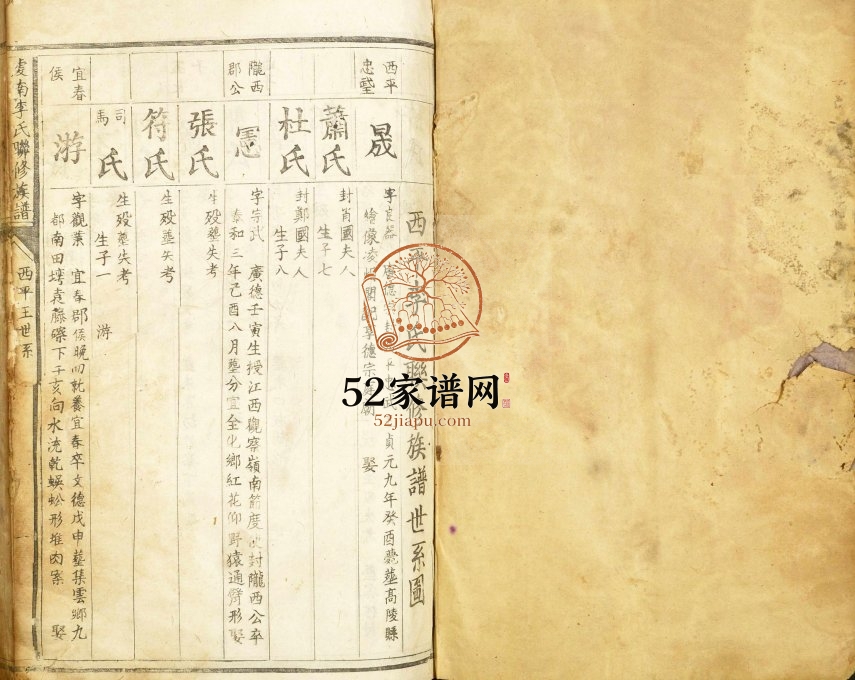 西平李氏聯修族譜世系圖
西平
忠武
晟
字良器
貞元九年癸酉薨葬高陵縣
繪像凌
德宗
娶
蕭氏
封肖國夫人
生子七
杜氏
封鄭國夫人
生子八
隴西
郡公
憲
字宗武 廣德壬寅生授江西觀察嶺南節度 封隴西公卒
泰和三年己酉八月塟分宜全化鄉紅花仰野猿通臂形娶
張氏
生殁塟失考
符氏
生殁塟失考
司
馬
氏
生殁塟失考
生子一 游
宜春
侯
游
字觀蕉 宜春郡侯晚 就養宜春卒文德戊申塟集雲鄉九
都南田 袁籐磜下壬亥向水流乾蜈蚣形堆肉案 娶
虔南李氏聯修族譜
西平王世系
52家谱网
52jiapu.com